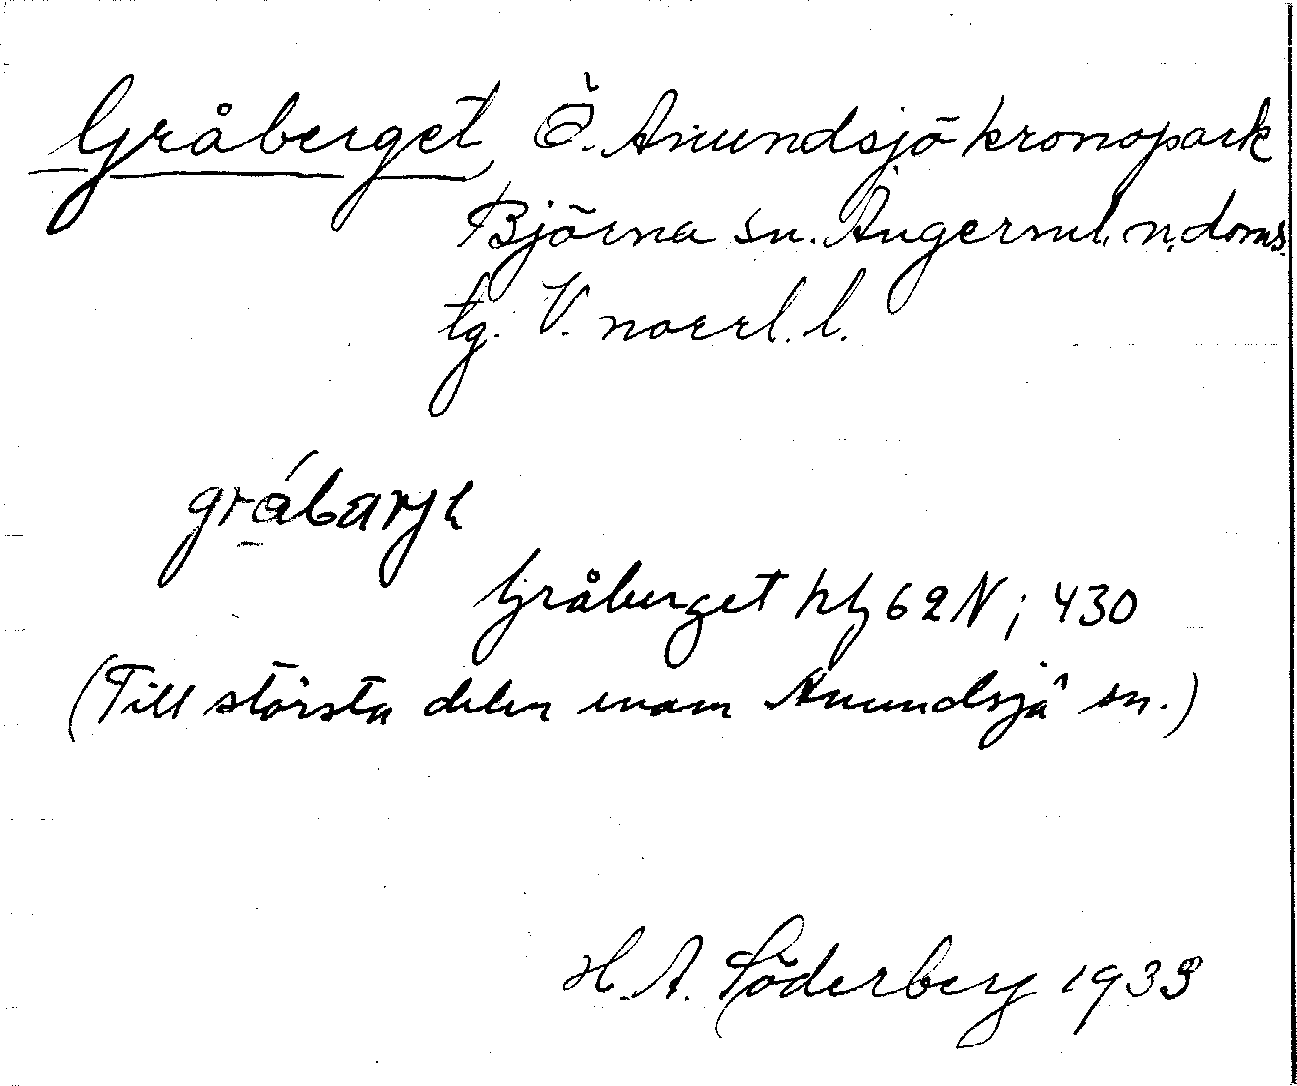 Gråberget, Ö. Anundsjö kronopark
Björna sn. Ångerml. n. doms.
tg. V. norrl. l.
Gråberget hfj 62 N; 430
(Till största delen inom Anundsjö sn.)
H. A. Söderberg 1933